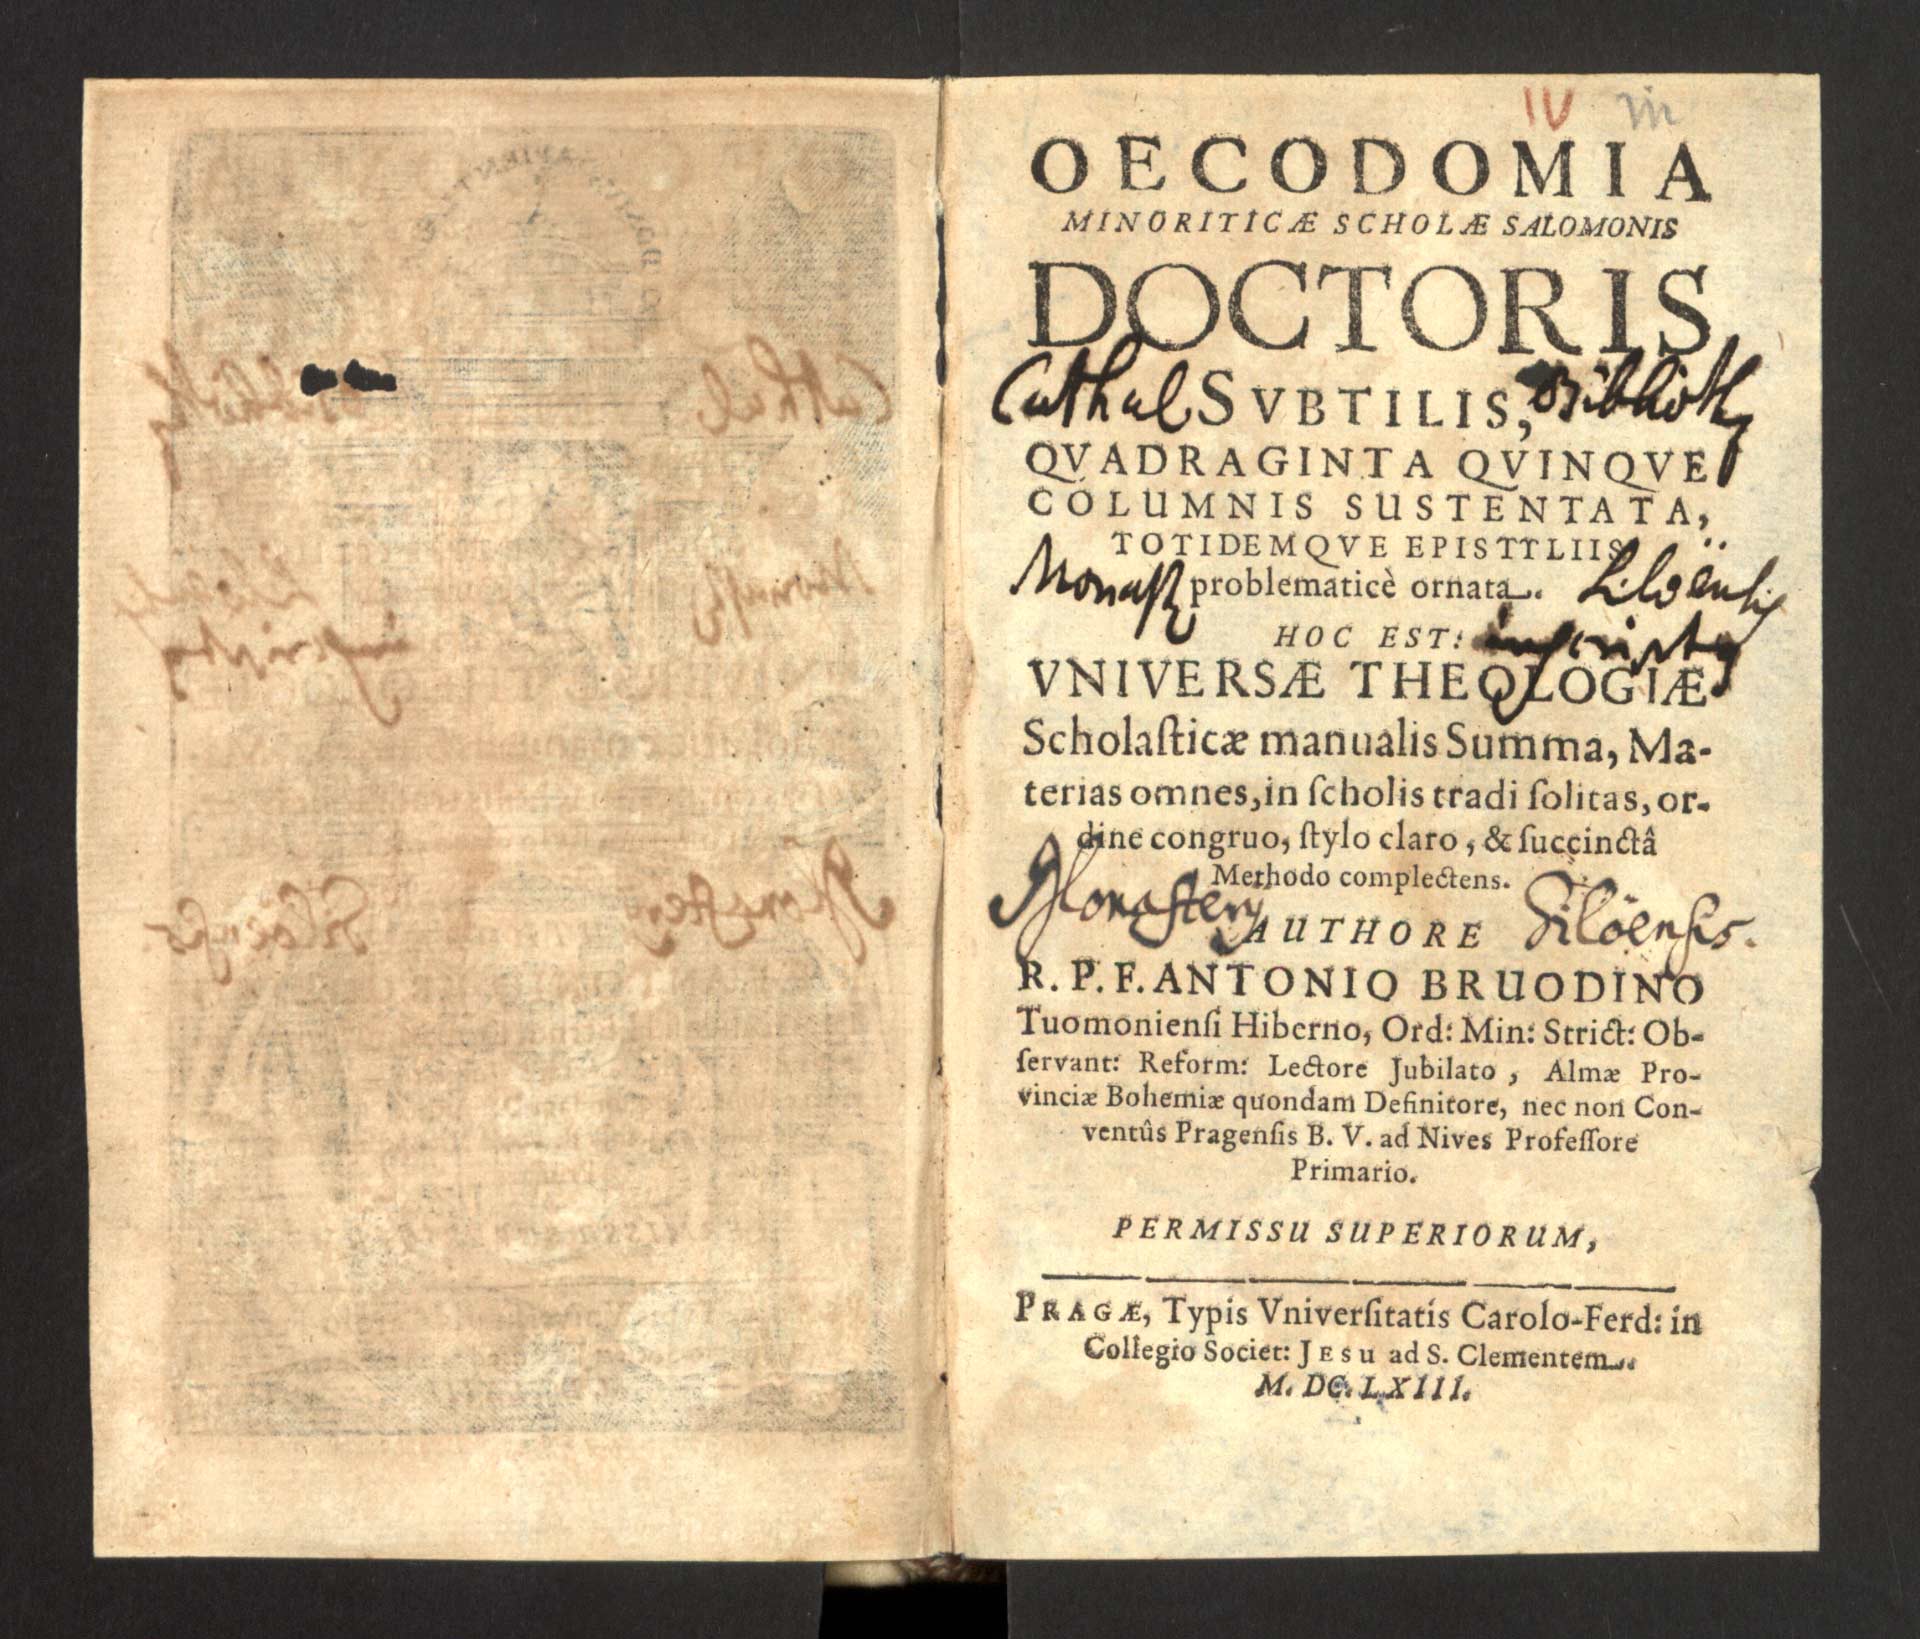 IV
OECODOMIA
MINORITICÆ SCHOLÆ SALOMONIS
DOCTORIS
Cathal SVBTILIS, Biblioth
QVADRAGINTA QVINQVE
COLUMNIS SUSTENTATA,
TOTIDEMQVE EPISTTLIIS
Monast problematicè ornata. Siloensis
HOC EST: inscriptus
VNIVERSÆ THEOLOGIÆ
Scholasticæ manualis Summa, Ma-
terias omnes, in scholis tradi solitas, or-
dine congruo, stylo claro, & succinctâ
Methodo complectens.
Monastery AUTHORE Siloënsis.
R. P. F. ANTONIO BRUODINO
Tuomoniensi Hiberno, Ord: Min: Strict: Ob-
servant: Reform: Lectore Jubilato, Almæ Pro-
vinciæ Bohemiæ quondam Definitore, nec non Con-
ventûs Pragensis B. V. ad Nives Professore
Primario.
PERMISSU SUPERIORUM,
PRAGÆ, Typis Vniversitatis Carolo-Ferd: in
Collegio Societ: JESU ad S. Clementem.
M. DC. LXIII.